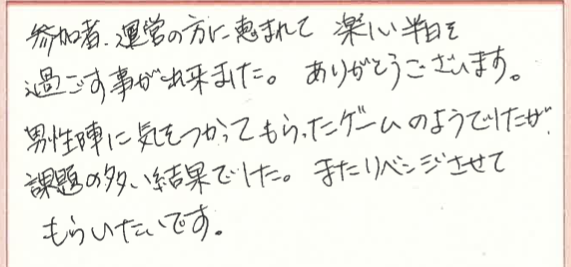 参加者、運営の方に恵まれて 楽しい半日を
過ごす事が出来ました。 ありがとうございます。
男性陣に気をつかってもらったゲームのようでしたが、
課題の多い結果でした。 またリベンジさせて
もらいたいです。